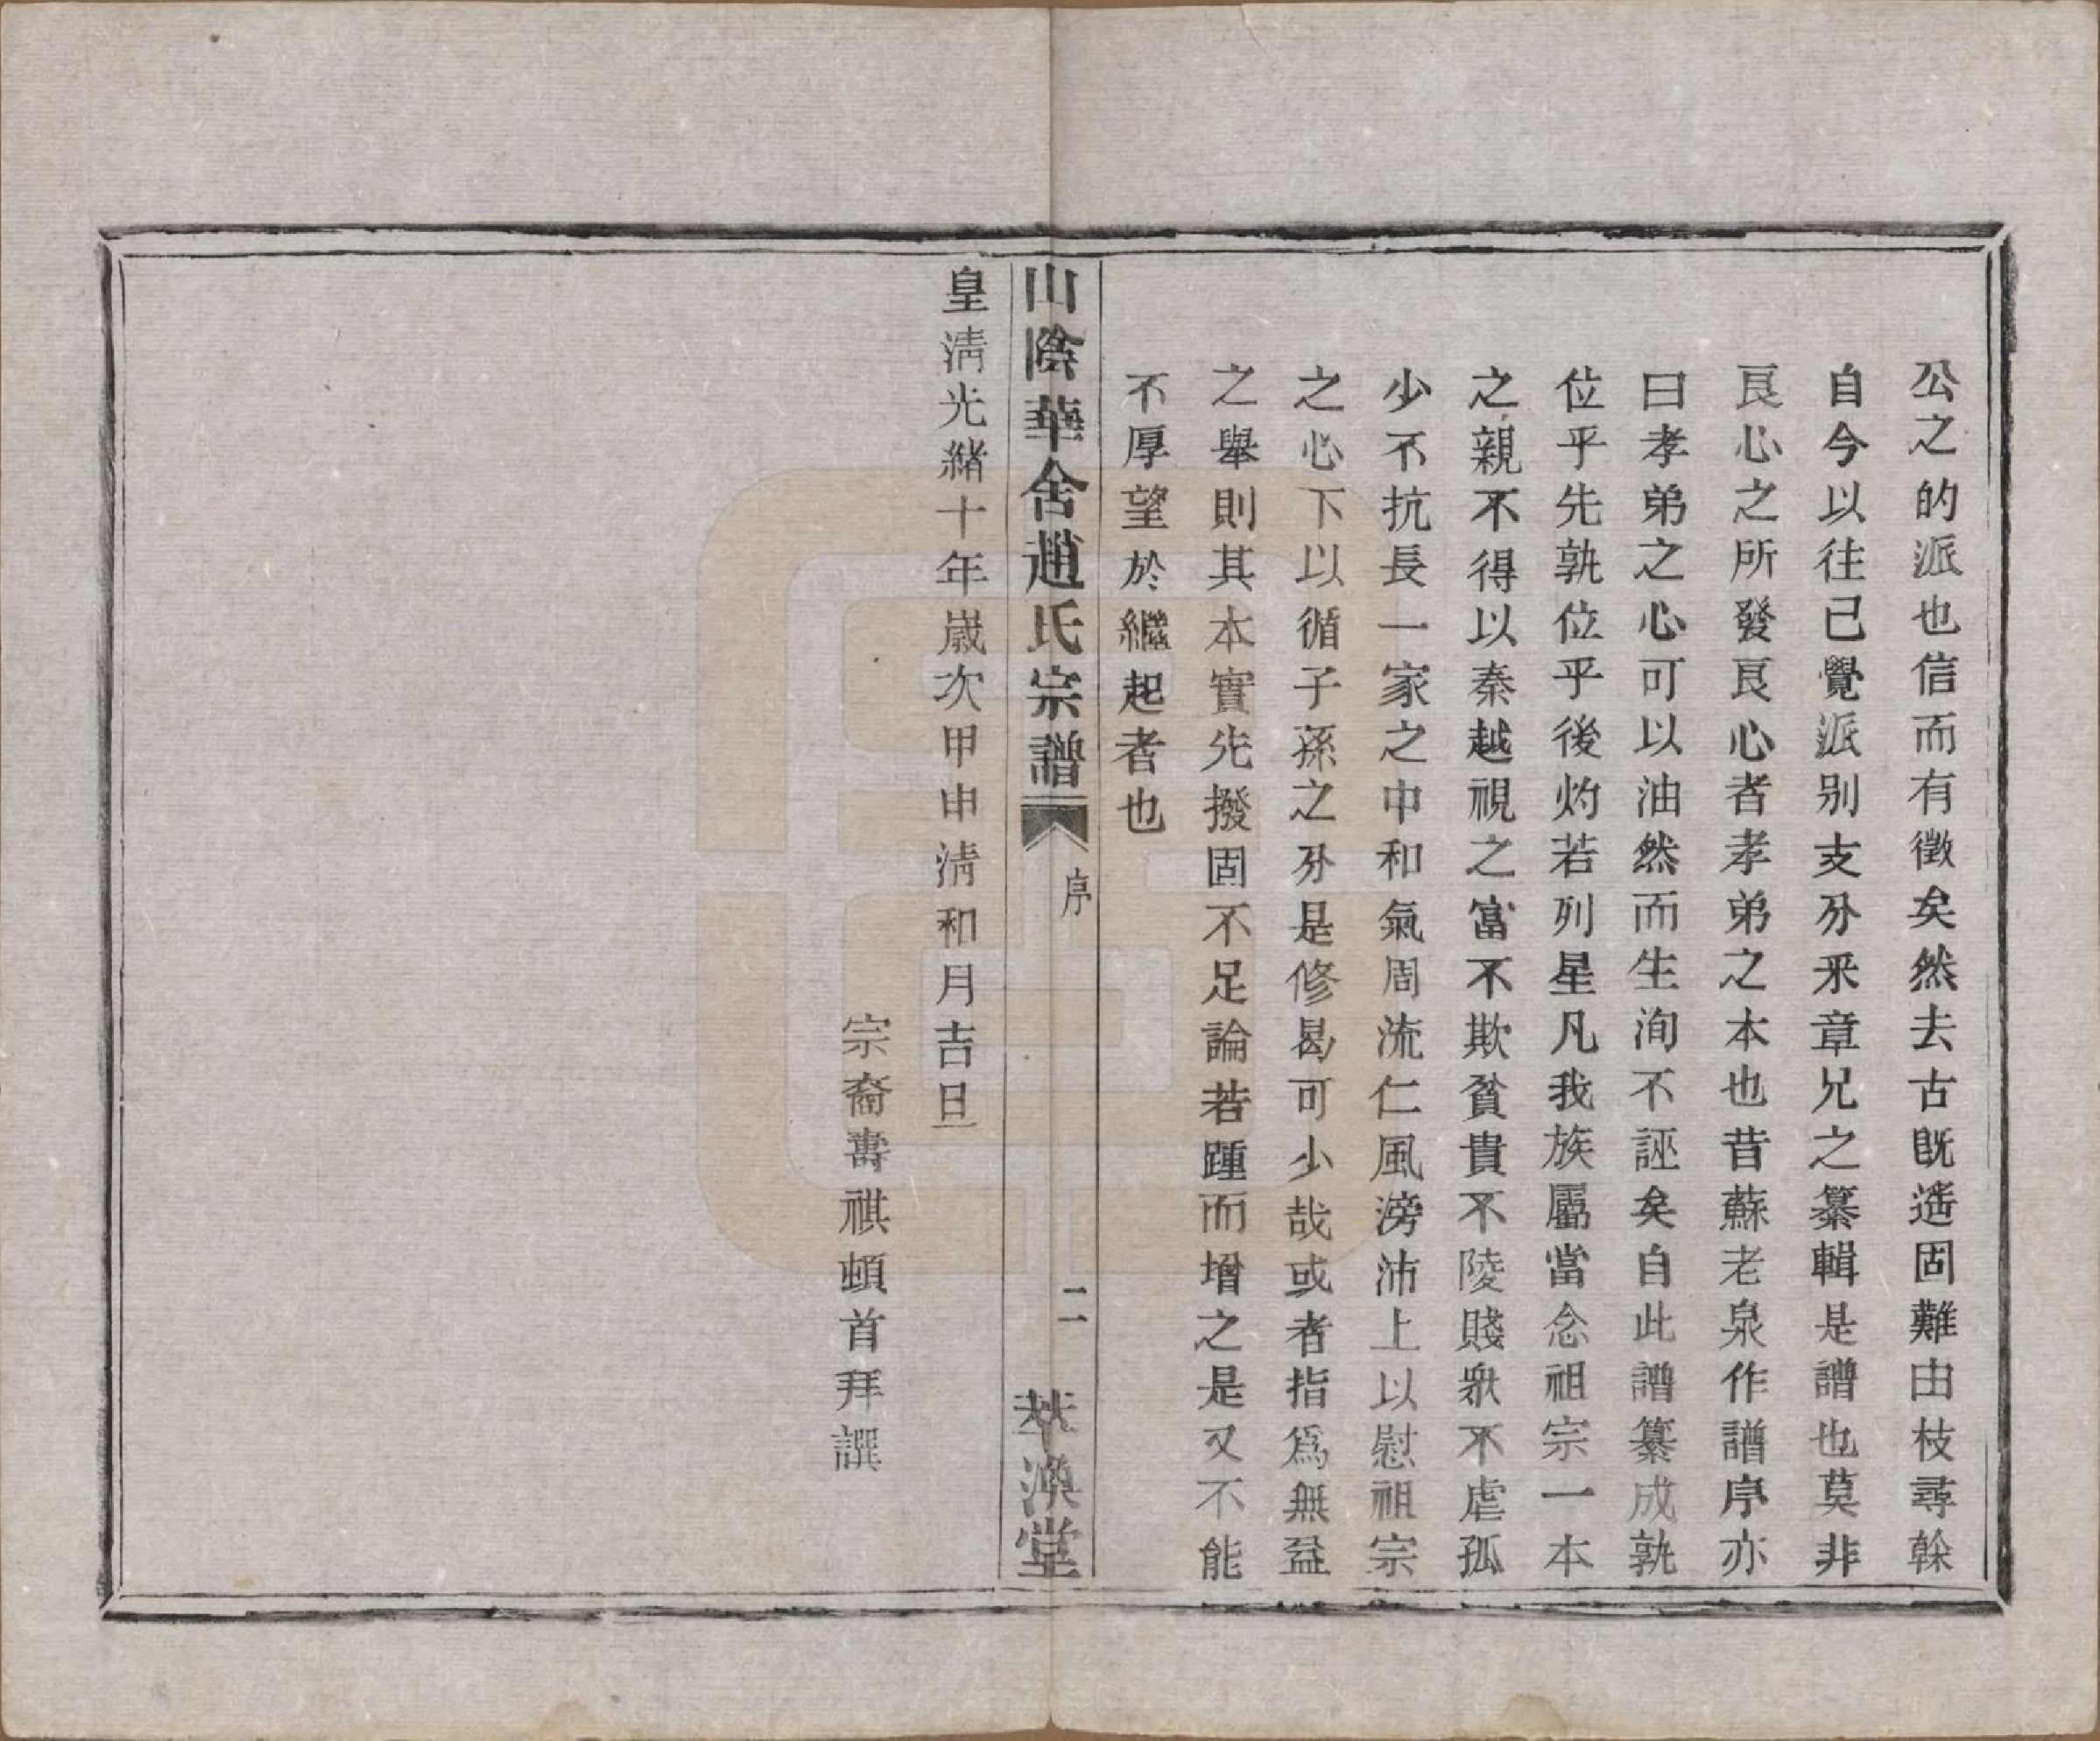 公之的派也信而有徵矣然去古旣遙固難由枝尋榦
自今以往已覺派别支分釆章兄之纂輯是譜也莫非
良心之所發良心者孝弟之本也昔蘇老泉作譜序亦
曰孝弟之心可以油然而生洵不誣矣自此譜纂成孰
位乎先孰位乎後灼若列星凡我族屬當念祖宗一本
之親不得以秦越視之富不欺貧貴不陵賤衆不虐孤
少不抗長一家之中和氣周流仁風滂沛上以慰祖宗
之心下以循子孫之分是修曷可少哉或者指爲無益
之舉則其本實先撥固不足論若踵而增之是又不能
不厚望於繼起者也
山陰華舍趙氏宗譜 序 二 萃渙堂
皇淸光緖十年歲次甲申淸和月吉旦
宗裔壽祺頓首拜譔